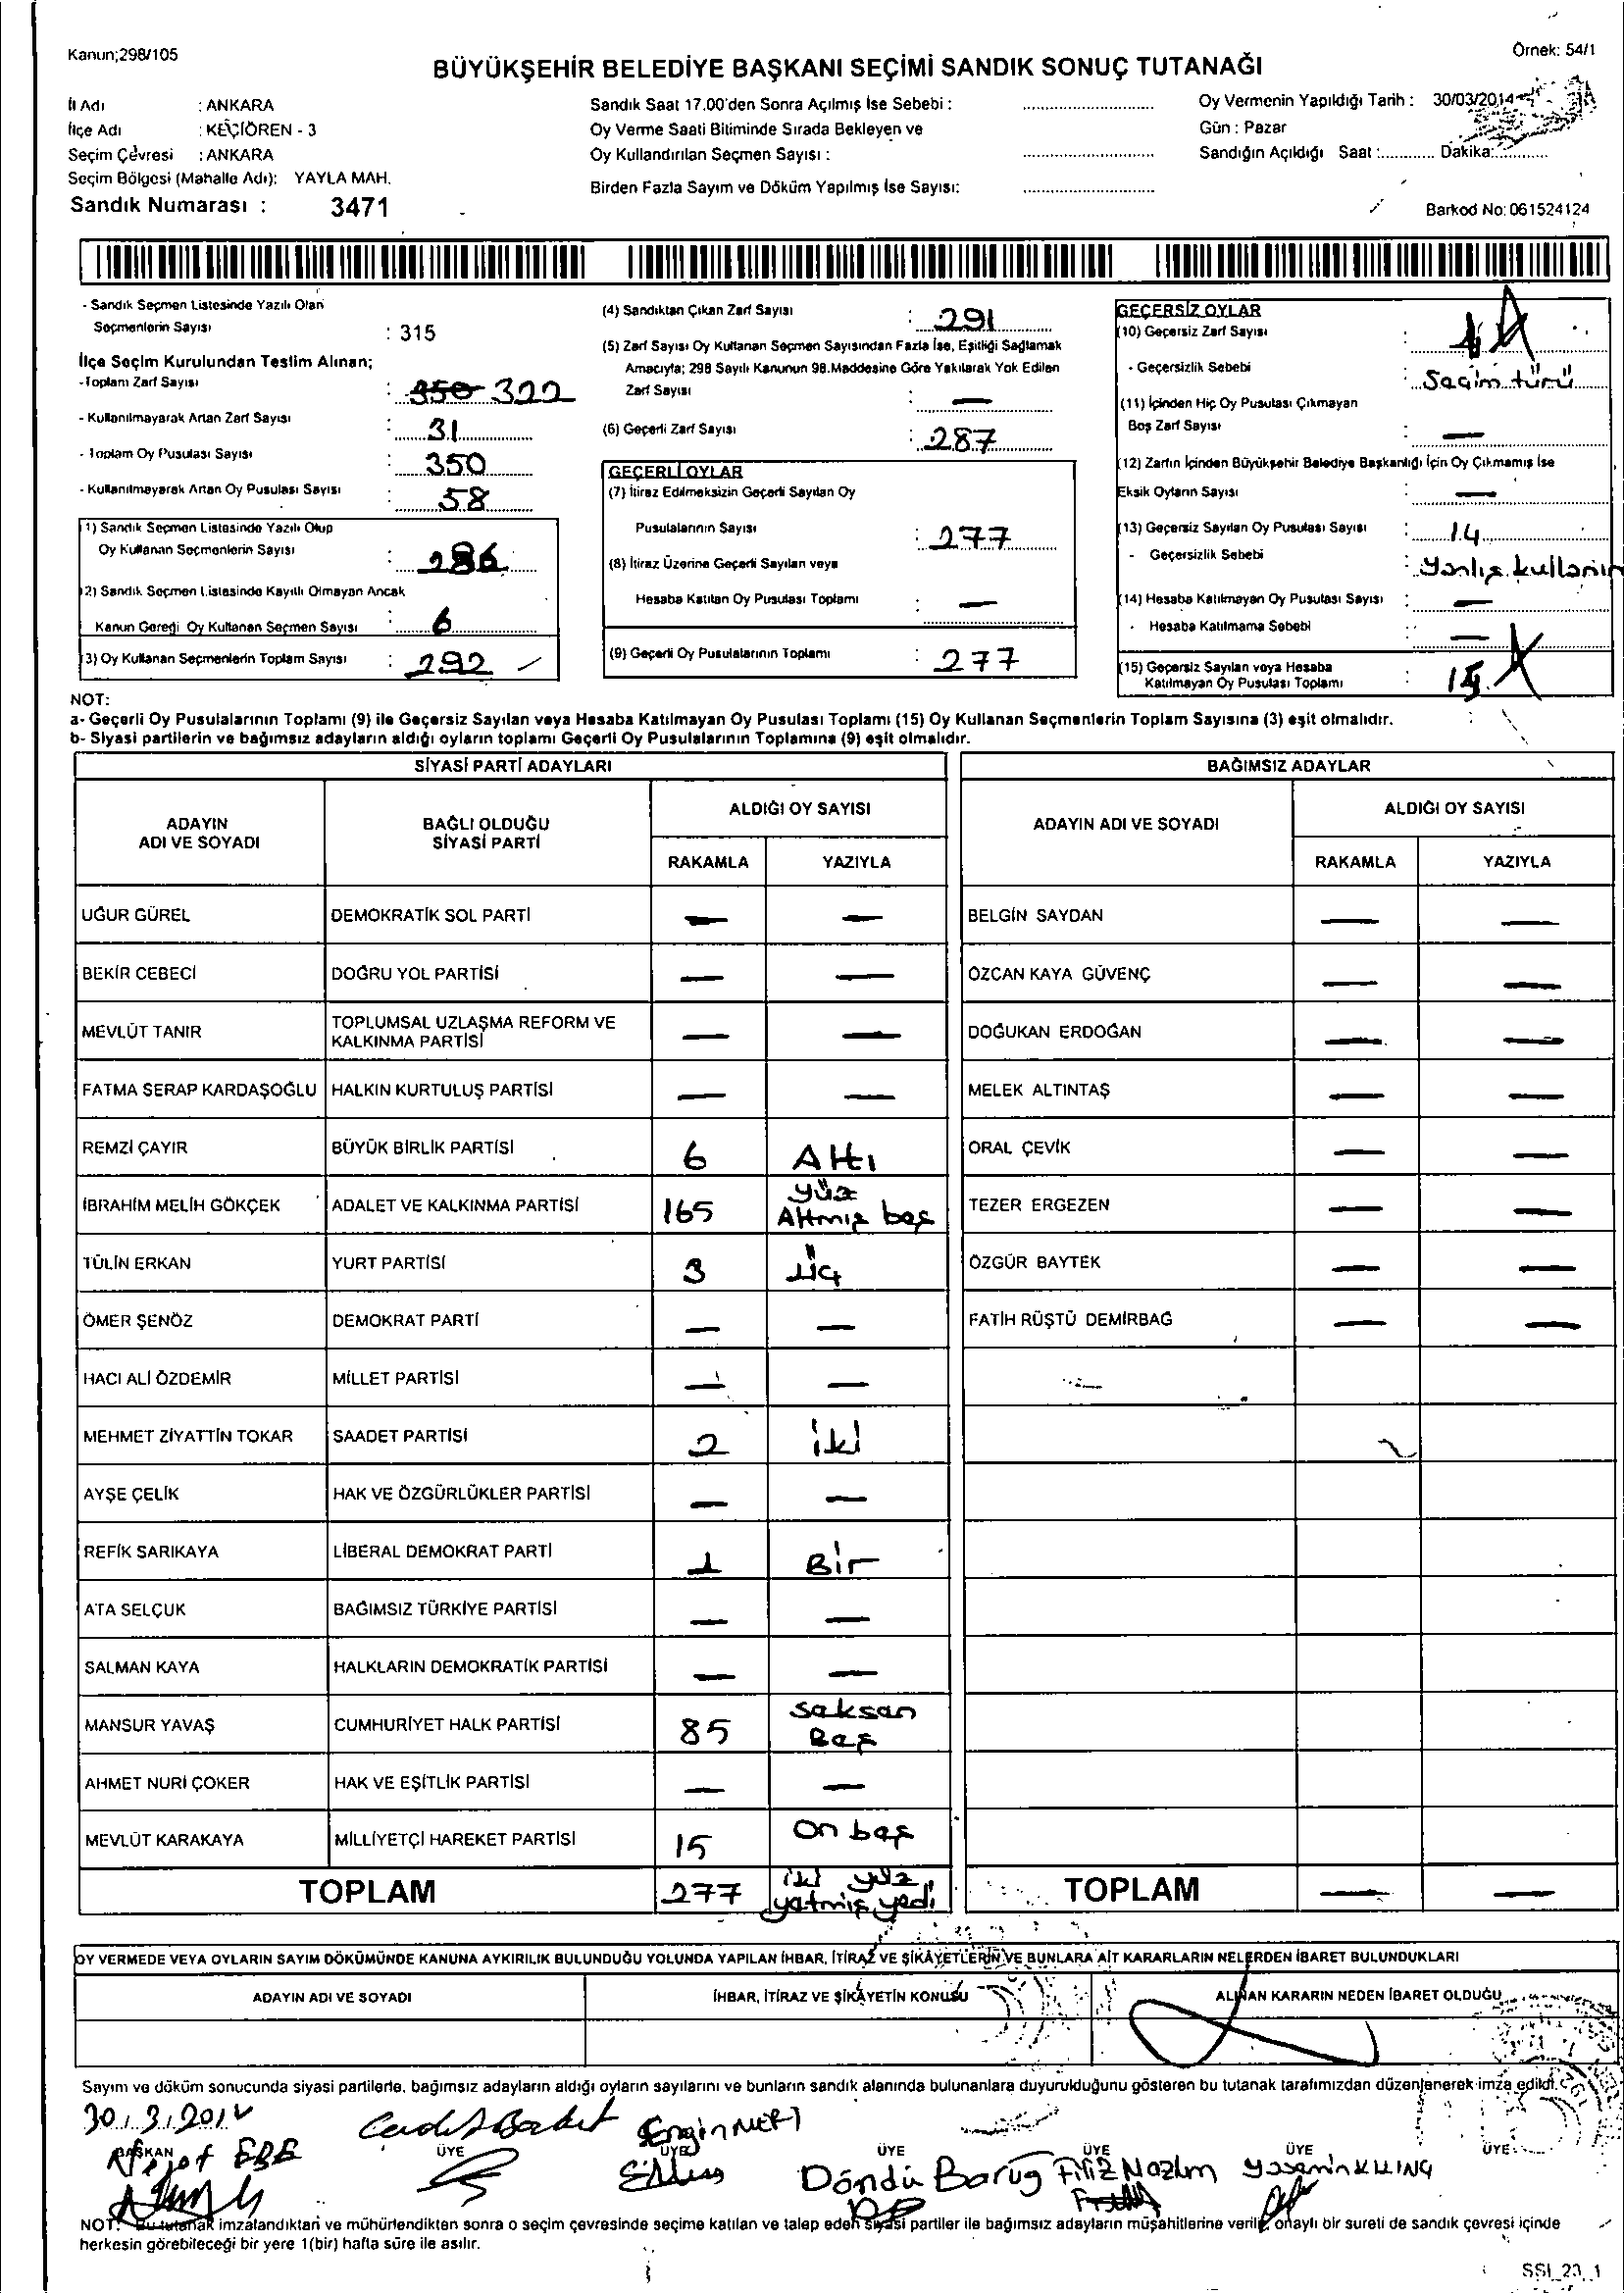 Kanun;298/105
Örnek: 54/1
BÜYÜKŞEHİR BELEDİYE BAŞKANI SEÇİMİ SANDIK SONUÇ TUTANAĞI
İl Adı : ANKARA
İlçe Adı : KEÇİÖREN - 3
Seçim Çevresi : ANKARA
Seçim Bölgesi (Mahalle Adı): YAYLA MAH.
Sandık Numarası : 3471
Sandık Saat 17.00'den Sonra Açılmış İse Sebebi :
Oy Verme Saati Bitiminde Sırada Bekleyen ve
Oy Kullandırılan Seçmen Sayısı :
Birden Fazla Sayım ve Döküm Yapılmış İse Sayısı:
Oy Vermenin Yapıldığı Tarih : 30/03/2014
Gün : Pazar
Sandığın Açıldığı Saat :............ Dakika:............
Barkod No: 061524124
- Sandık Seçmen Listesinde Yazılı Olan
Seçmenlerin Sayısı : 315
İlçe Seçim Kurulundan Teslim Alınan;
-Toplam Zarf Sayısı : 350 322
- Kullanılmayarak Artan Zarf Sayısı : 31
- Toplam Oy Pusulası Sayısı : 350
- Kullanılmayarak Artan Oy Pusulası Sayısı : 58
(1) Sandık Seçmen Listesinde Yazılı Olup
Oy Kullanan Seçmenlerin Sayısı : 286
(2) Sandık Seçmen Listesinde Kayıtlı Olmayan Ancak
Kanun Gereği Oy Kullanan Seçmen Sayısı : 6
(3) Oy Kullanan Seçmenlerin Toplam Sayısı : 292
(4) Sandıktan Çıkan Zarf Sayısı : 291
(5) Zarf Sayısı Oy Kullanan Seçmen Sayısından Fazla İse, Eşitliği Sağlamak
Amacıyla; 298 Sayılı Kanunun 98.Maddesine Göre Yakılarak Yok Edilen
Zarf Sayısı : —
(6) Geçerli Zarf Sayısı : 287
GEÇERLİ OYLAR
(7) İtiraz Edilmeksizin Geçerli Sayılan Oy
Pusulalarının Sayısı : 277
(8) İtiraz Üzerine Geçerli Sayılan veya
Hesaba Katılan Oy Pusulası Toplamı : —
(9) Geçerli Oy Pusulalarının Toplamı : 277
GEÇERSİZ OYLAR
(10) Geçersiz Zarf Sayısı :
- Geçersizlik Sebebi : Seçim türü
(11) İçinden Hiç Oy Pusulası Çıkmayan
Boş Zarf Sayısı : —
(12) Zarfın İçinden Büyükşehir Belediye Başkanlığı İçin Oy Çıkmamış İse
Eksik Oyların Sayısı : —
(13) Geçersiz Sayılan Oy Pusulası Sayısı : 14
- Geçersizlik Sebebi : Yanlış kullanım
(14) Hesaba Katılmayan Oy Pusulası Sayısı : —
- Hesaba Katılmama Sebebi : —
(15) Geçersiz Sayılan veya Hesaba
Katılmayan Oy Pusulası Toplamı : 15
NOT:
a- Geçerli Oy Pusulalarının Toplamı (9) ile Geçersiz Sayılan veya Hesaba Katılmayan Oy Pusulası Toplamı (15) Oy Kullanan Seçmenlerin Toplam Sayısına (3) eşit olmalıdır.
b- Siyasi partilerin ve bağımsız adayların aldığı oyların toplamı Geçerli Oy Pusulalarının Toplamına (9) eşit olmalıdır.
SİYASİ PARTİ ADAYLARI
ADAYIN ADI VE SOYADI
BAĞLI OLDUĞU SİYASİ PARTİ
ALDIĞI OY SAYISI
RAKAMLA YAZIYLA
UĞUR GÜREL DEMOKRATİK SOL PARTİ — —
BEKİR CEBECİ DOĞRU YOL PARTİSİ — —
MEVLÜT TANIR TOPLUMSAL UZLAŞMA REFORM VE KALKINMA PARTİSİ — —
FATMA SERAP KARDAŞOĞLU HALKIN KURTULUŞ PARTİSİ — —
REMZİ ÇAYIR BÜYÜK BİRLİK PARTİSİ 6 Altı
İBRAHİM MELİH GÖKÇEK ADALET VE KALKINMA PARTİSİ 165 yüz Altmış beş
TÜLİN ERKAN YURT PARTİSİ 3 üç
ÖMER ŞENÖZ DEMOKRAT PARTİ — —
HACI ALİ ÖZDEMİR MİLLET PARTİSİ — —
MEHMET ZİYATTİN TOKAR SAADET PARTİSİ 2 iki
AYŞE ÇELİK HAK VE ÖZGÜRLÜKLER PARTİSİ — —
REFİK SARIKAYA LİBERAL DEMOKRAT PARTİ 1 Bir
ATA SELÇUK BAĞIMSIZ TÜRKİYE PARTİSİ — —
SALMAN KAYA HALKLARIN DEMOKRATİK PARTİSİ — —
MANSUR YAVAŞ CUMHURİYET HALK PARTİSİ 85 seksen Beş
AHMET NURİ ÇOKER HAK VE EŞİTLİK PARTİSİ — —
MEVLÜT KARAKAYA MİLLİYETÇİ HAREKET PARTİSİ 15 On beş
TOPLAM 277 iki yüz yetmiş yedi
BAĞIMSIZ ADAYLAR
ADAYIN ADI VE SOYADI
ALDIĞI OY SAYISI
RAKAMLA YAZIYLA
BELGİN SAYDAN — —
ÖZCAN KAYA GÜVENÇ — —
DOĞUKAN ERDOĞAN — —
MELEK ALTINTAŞ — —
ORAL ÇEVİK — —
TEZER ERGEZEN — —
ÖZGÜR BAYTEK — —
FATİH RÜŞTÜ DEMİRBAĞ — —
TOPLAM — —
OY VERMEDE VEYA OYLARIN SAYIM DÖKÜMÜNDE KANUNA AYKIRILIK BULUNDUĞU YOLUNDA YAPILAN İHBAR, İTİRAZ VE ŞİKAYETLERİN VE BUNLARA AİT KARARLARIN NELERDEN İBARET BULUNDUKLARI
ADAYIN ADI VE SOYADI
İHBAR, İTİRAZ VE ŞİKAYETİN KONUSU
ALINAN KARARIN NEDEN İBARET OLDUĞU
Sayım ve döküm sonucunda siyasi partilerle, bağımsız adayların aldığı oyların sayılarını ve bunların sandık alanında bulunanlara duyurulduğunu gösteren bu tutanak tarafımızdan düzenlenerek imza edildi.
30.3.2014
BAŞKAN ÜYE ÜYE ÜYE ÜYE ÜYE ÜYE
Engin MERT
Döndü Barug Filiz Nazlım Yasemin KILINÇ
NOT: Bu tutanak imzalandıktan ve mühürlendikten sonra o seçim çevresinde seçime katılan ve talep eden siyasi partiler ile bağımsız adayların müşahitlerine verilir, onaylı bir sureti de sandık çevresi içinde
herkesin görebileceği bir yere 1(bir) hafta süre ile asılır.